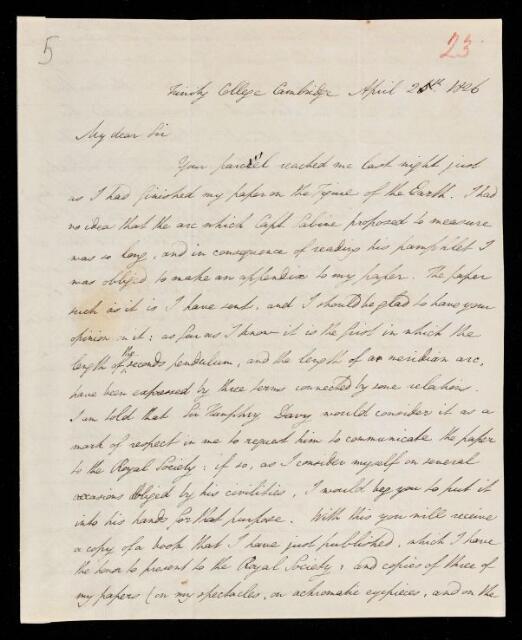 5
23
Trinity College Cambridge April 26th. 1826
My dear Sir
Your parcel reached me last night just
as I had finished my paper on the Figure of the Earth. I had
no idea that the arc which Capt. Sabine proposed to measure
was so long, and in consequence of reading his pamphlet I
was obliged to make an appendix to my paper. The paper
such as it is I have sent, and I should be glad to have your
opinion on it: as far as I know it is the first in which the
length of the seconds pendulum, and the length of a meridian arc,
have been expressed by three terms connected by some relations.
I am told that Sir Humphry Davy would consider it as a
mark of respect in me to request him to communicate the paper
to the Royal Society: if so, as I consider myself on several
occasions obliged by his civilities, I would beg you to put it
into his hands for that purpose. With this you will receive
a copy of a book that I have just published, which I have
the honor to present to the Royal Society; and copies of three of
my papers (on my spectacles, on achromatic eyepieces, and on the